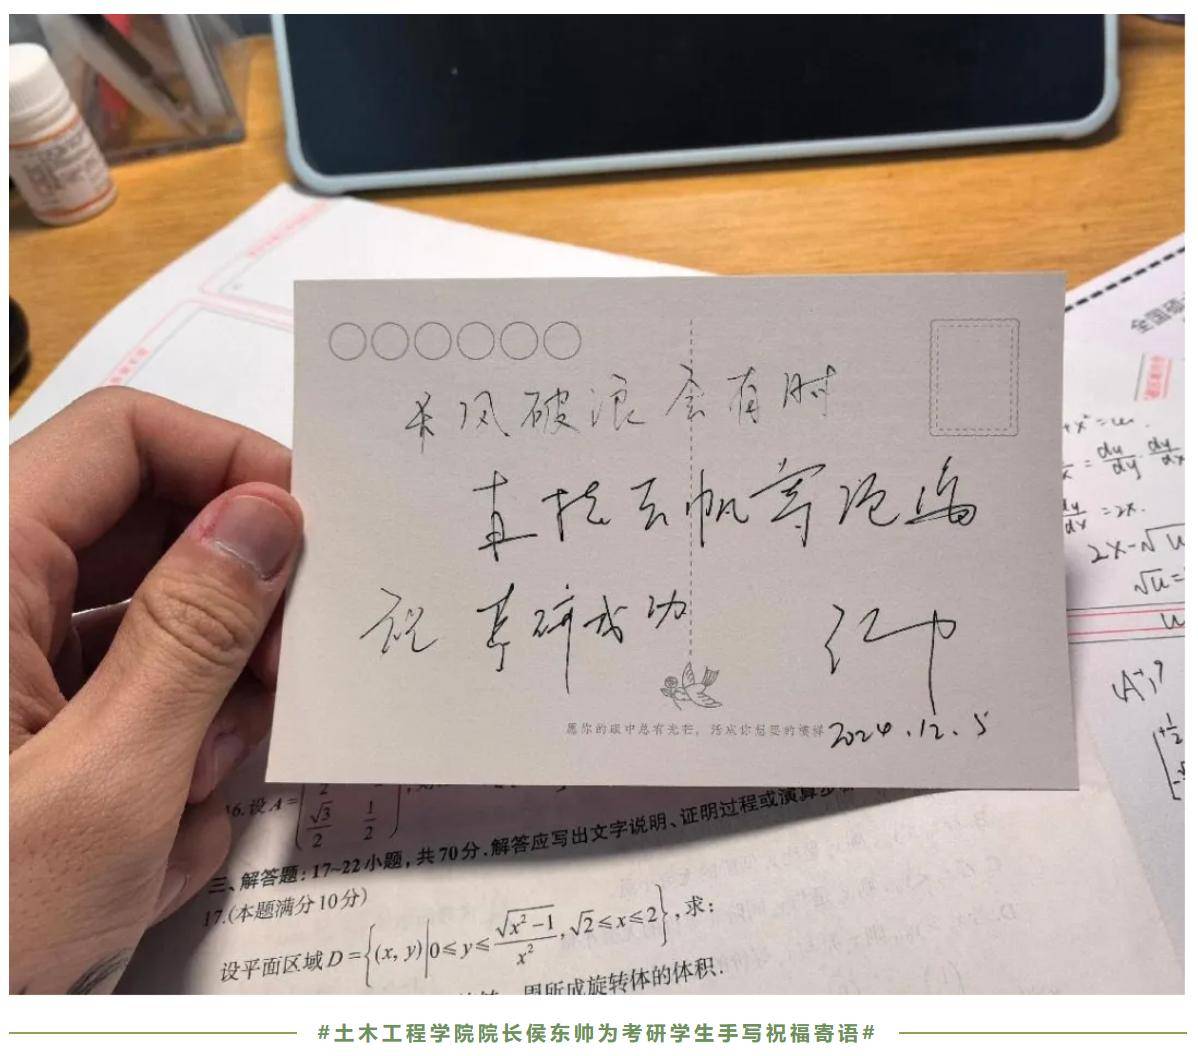 长风破浪会有时
直挂云帆济沧海
祝 考研成功
2024.12.5
愿你的眼中总有光芒，活成你想要的模样
全国硕
+x²=u.
= du/dy · dy/dx
dy/dx = 2x.
2x-√u
√u=
16.设A=
√3/2 1/2
三、解答题：17~22小题，共70分.解答应写出文字说明、证明过程或演算步
17.(本题满分10分)
设平面区域D={(x, y)|0≤y≤√(x²-1)/x², √2≤x≤2}，求：
周所成旋转体的体积.
#土木工程学院院长侯东帅为考研学生手写祝福寄语#